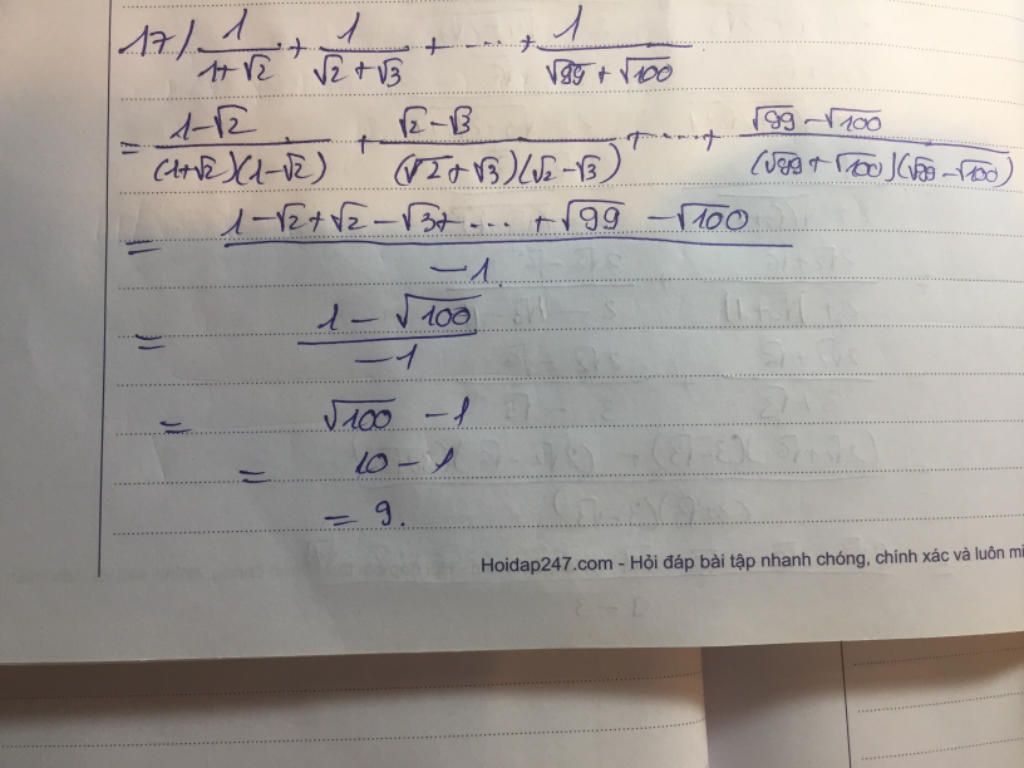 17/ 1/(1+√2) + 1/(√2+√3) + ... + 1/(√99+√100)
= (1-√2)/((1+√2)(1-√2)) + (√2-√3)/((√2+√3)(√2-√3)) + ... + (√99-√100)/((√99+√100)(√99-√100))
= (1-√2+√2-√3+ ... +√99-√100)/(-1)
= (1-√100)/(-1)
= √100 - 1
= 10 - 1
= 9.
Hoidap247.com - Hỏi đáp bài tập nhanh chóng, chính xác và luôn